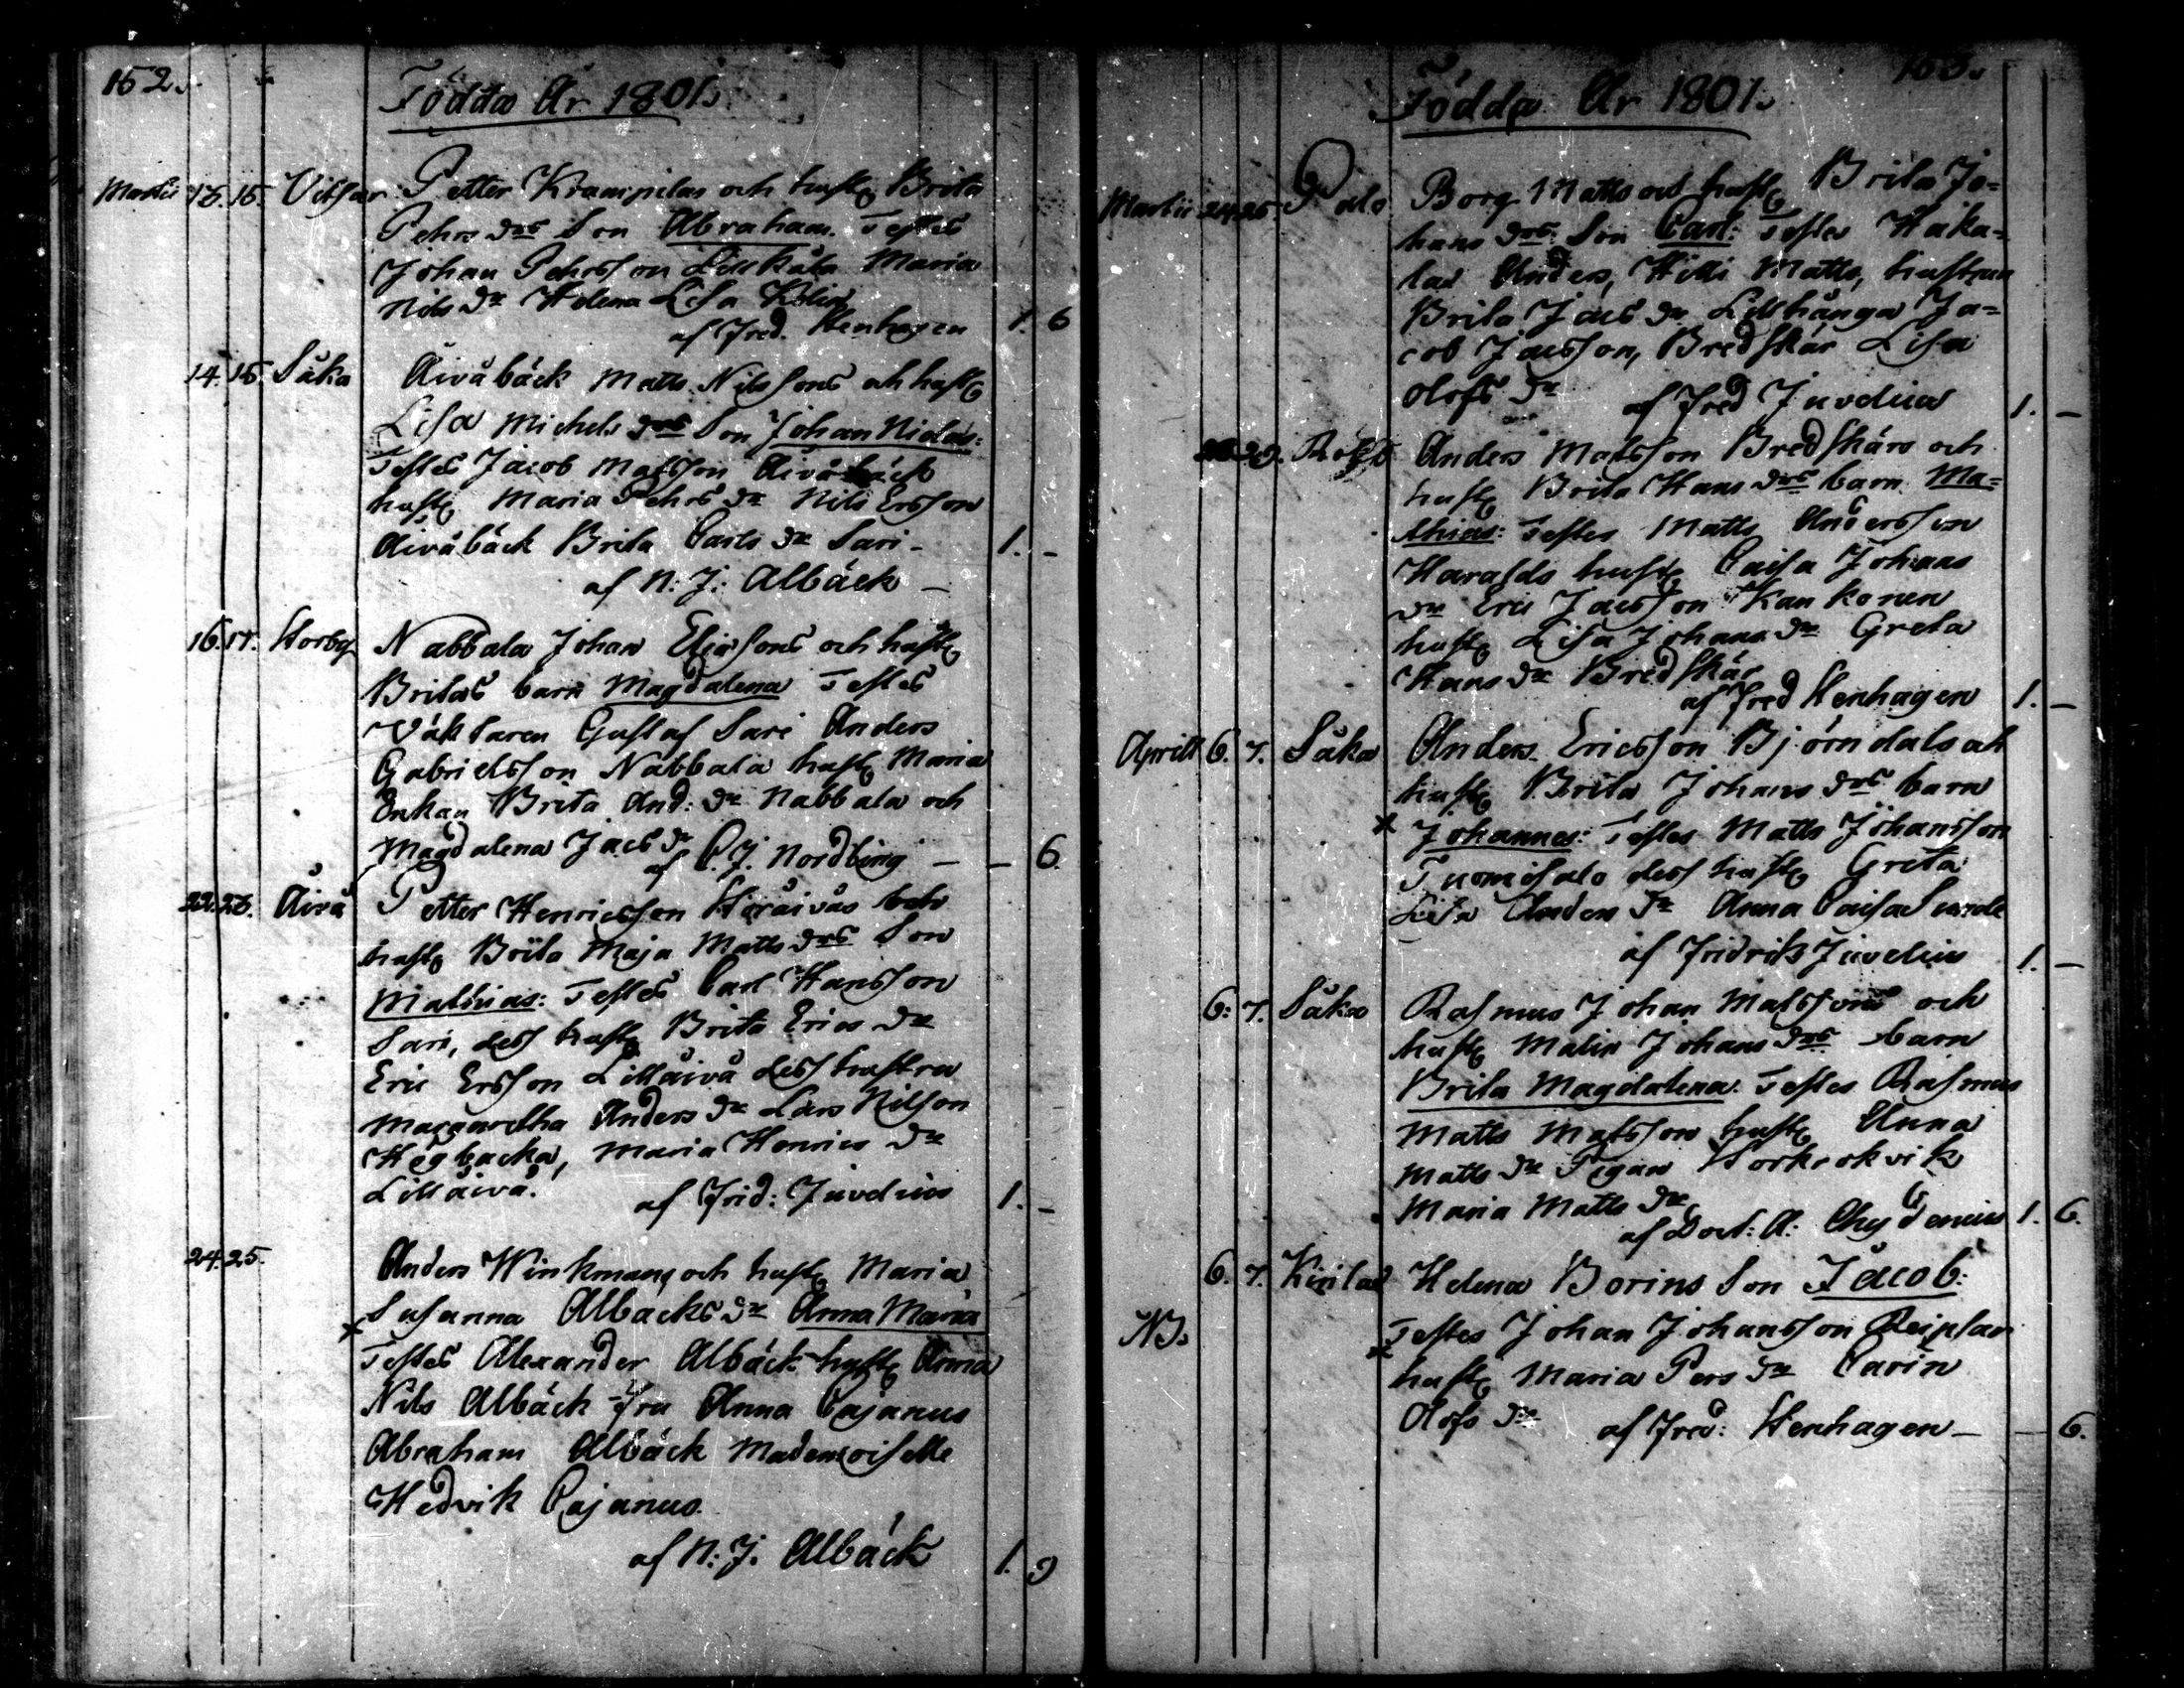 152.
Födda År 1801.
Martii 13. 15. Vitsar Petter Krampulas och hust. Brita
Pehrs drs Son Abraham. Testes
Johan Pehrsson Lillkåla Maria
Nils dr Helena Lisa
af Fred. Stenhagen 1. 6
14. 15. Såka Åivåbäck Matts Nilssons och hust.
Lisa Michels drs Son Johan Nicolas:
Testes Jacob Matsson Åivåbäck
hust. Maria Pehrs dr Nils Ersson
Åivåbäck Brita Carls dr Sari -
1. -
af N: J: Albäck -
16. 17. Storby Nabbala Johan Eliæsons och hust.
Britas barn Magdalena Testes
Väktaren Gustaf Sari Anders
Gabrielsson Nabbala hust. Maria
Enkan Brita And: dr Nabbala och
Magdalena Jacs dr
af C. J. Nordling - - 6.
22. 23. Åivå Petter Henricsson Storåivås och
hust. Brita Maja Matts drs Son
Mathias: Testes Carl Hansson
Sari, dess hust. Brita Erics dr
Eric Ersson Lillåivå dess hustru
Margaretha Anders dr Lars Nilson
Högbacka, Maria Henrics dr
Lillåivå.
af Frid: Juvelius 1. -
24. 25. Anders Winkmans och hust. Maria
Susanna Albäcks dr Anna Maria
Testes Alexander Albäck hust. Anna
Nils Albäck fru Anna Cajanus
Abraham Albäck Mademoiselle
Hedvik Cajanus.
af N: J. Albäck 1. 9
153.
Födda År 1801.
Martii 24. 25. Palo Borg Matts och hust. Brita Jo=
hans drs Son Carl: Testes Haika=
las Anders, Hilli Matts, hustrun
Brita Jacs dr Lillhånga Ja=
cob Jacsson, Bredskär Lisa
Olofs dr
af Fred Juvelius 1. -
29. Anders Matsson Bredskärs och
hust. Brita Hans drs barn Ma=
thias: Testes Matts Andersson
Haralds hust. Caisa Johans
dr Eric Jacsson Kankonen
hust. Lisa Johans dr Greta
Hans dr Bredskär
af Fred Stenhagen 1. -
Aprill 6. 7. Såka Anders Ericsson Björndals och
hust. Brita Johans drs barn
Johannes: Testes Matts Johansson
Tuomisalo dess hust. Greta
Lisa Anders dr Anna Caisa Sunde
af Fridrik Juvelius 1. -
6: 7. Såka Rasmus Johan Matssons och
hust. Malin Johans drs barn
Brita Magdalena: Testes Rasmus
Matts Matsson hust. Anna
Matts dr Pigan Storkrokvik
Maria Matts dr
af Doct: A: Chydenius 1. 6.
6. 7. Kirilax Helena Borins Son Jacob:
NB. Testes Johan Johansson Reiplan
hust. Maria Pers dr Carin
Olofs dr
af Fred: Stenhagen - - 6.